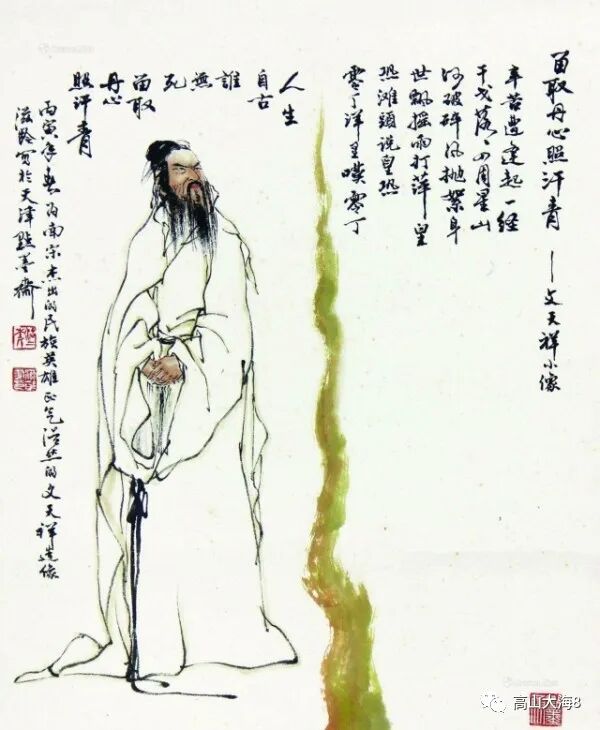 畄取丹心照汗青——文天祥小像
辛苦遭逢起一经
干戈落々四周星山
河破碎风抛絮身
世飘摇雨打萍皇
恐滩头说皇恐
零丁洋里嘆零丁
人生
自古
誰
無
死
畄取
丹心
照汗青
丙寅年春为南宋杰出的民族英雄正气浩然的文天祥造像
滋龄写於天津點墨齋
高山大海8